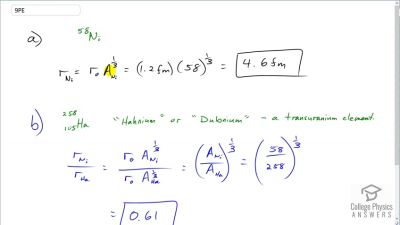 9PE
a) ⁵⁸Ni
r_Ni = r₀ A_Ni^(1/3) = (1.2 fm)(58)^(1/3) = 4.6 fm
b) ²⁵⁸₁₀₅Ha "Hahnium" or "Dubnium" - a transuranium element.
r_Ni / r_Ha = r₀ A_Ni^(1/3) / r₀ A_Ha^(1/3) = (A_Ni / A_Ha)^(1/3) = (58 / 258)^(1/3)
= 0.61
College Physics
ANSWERS